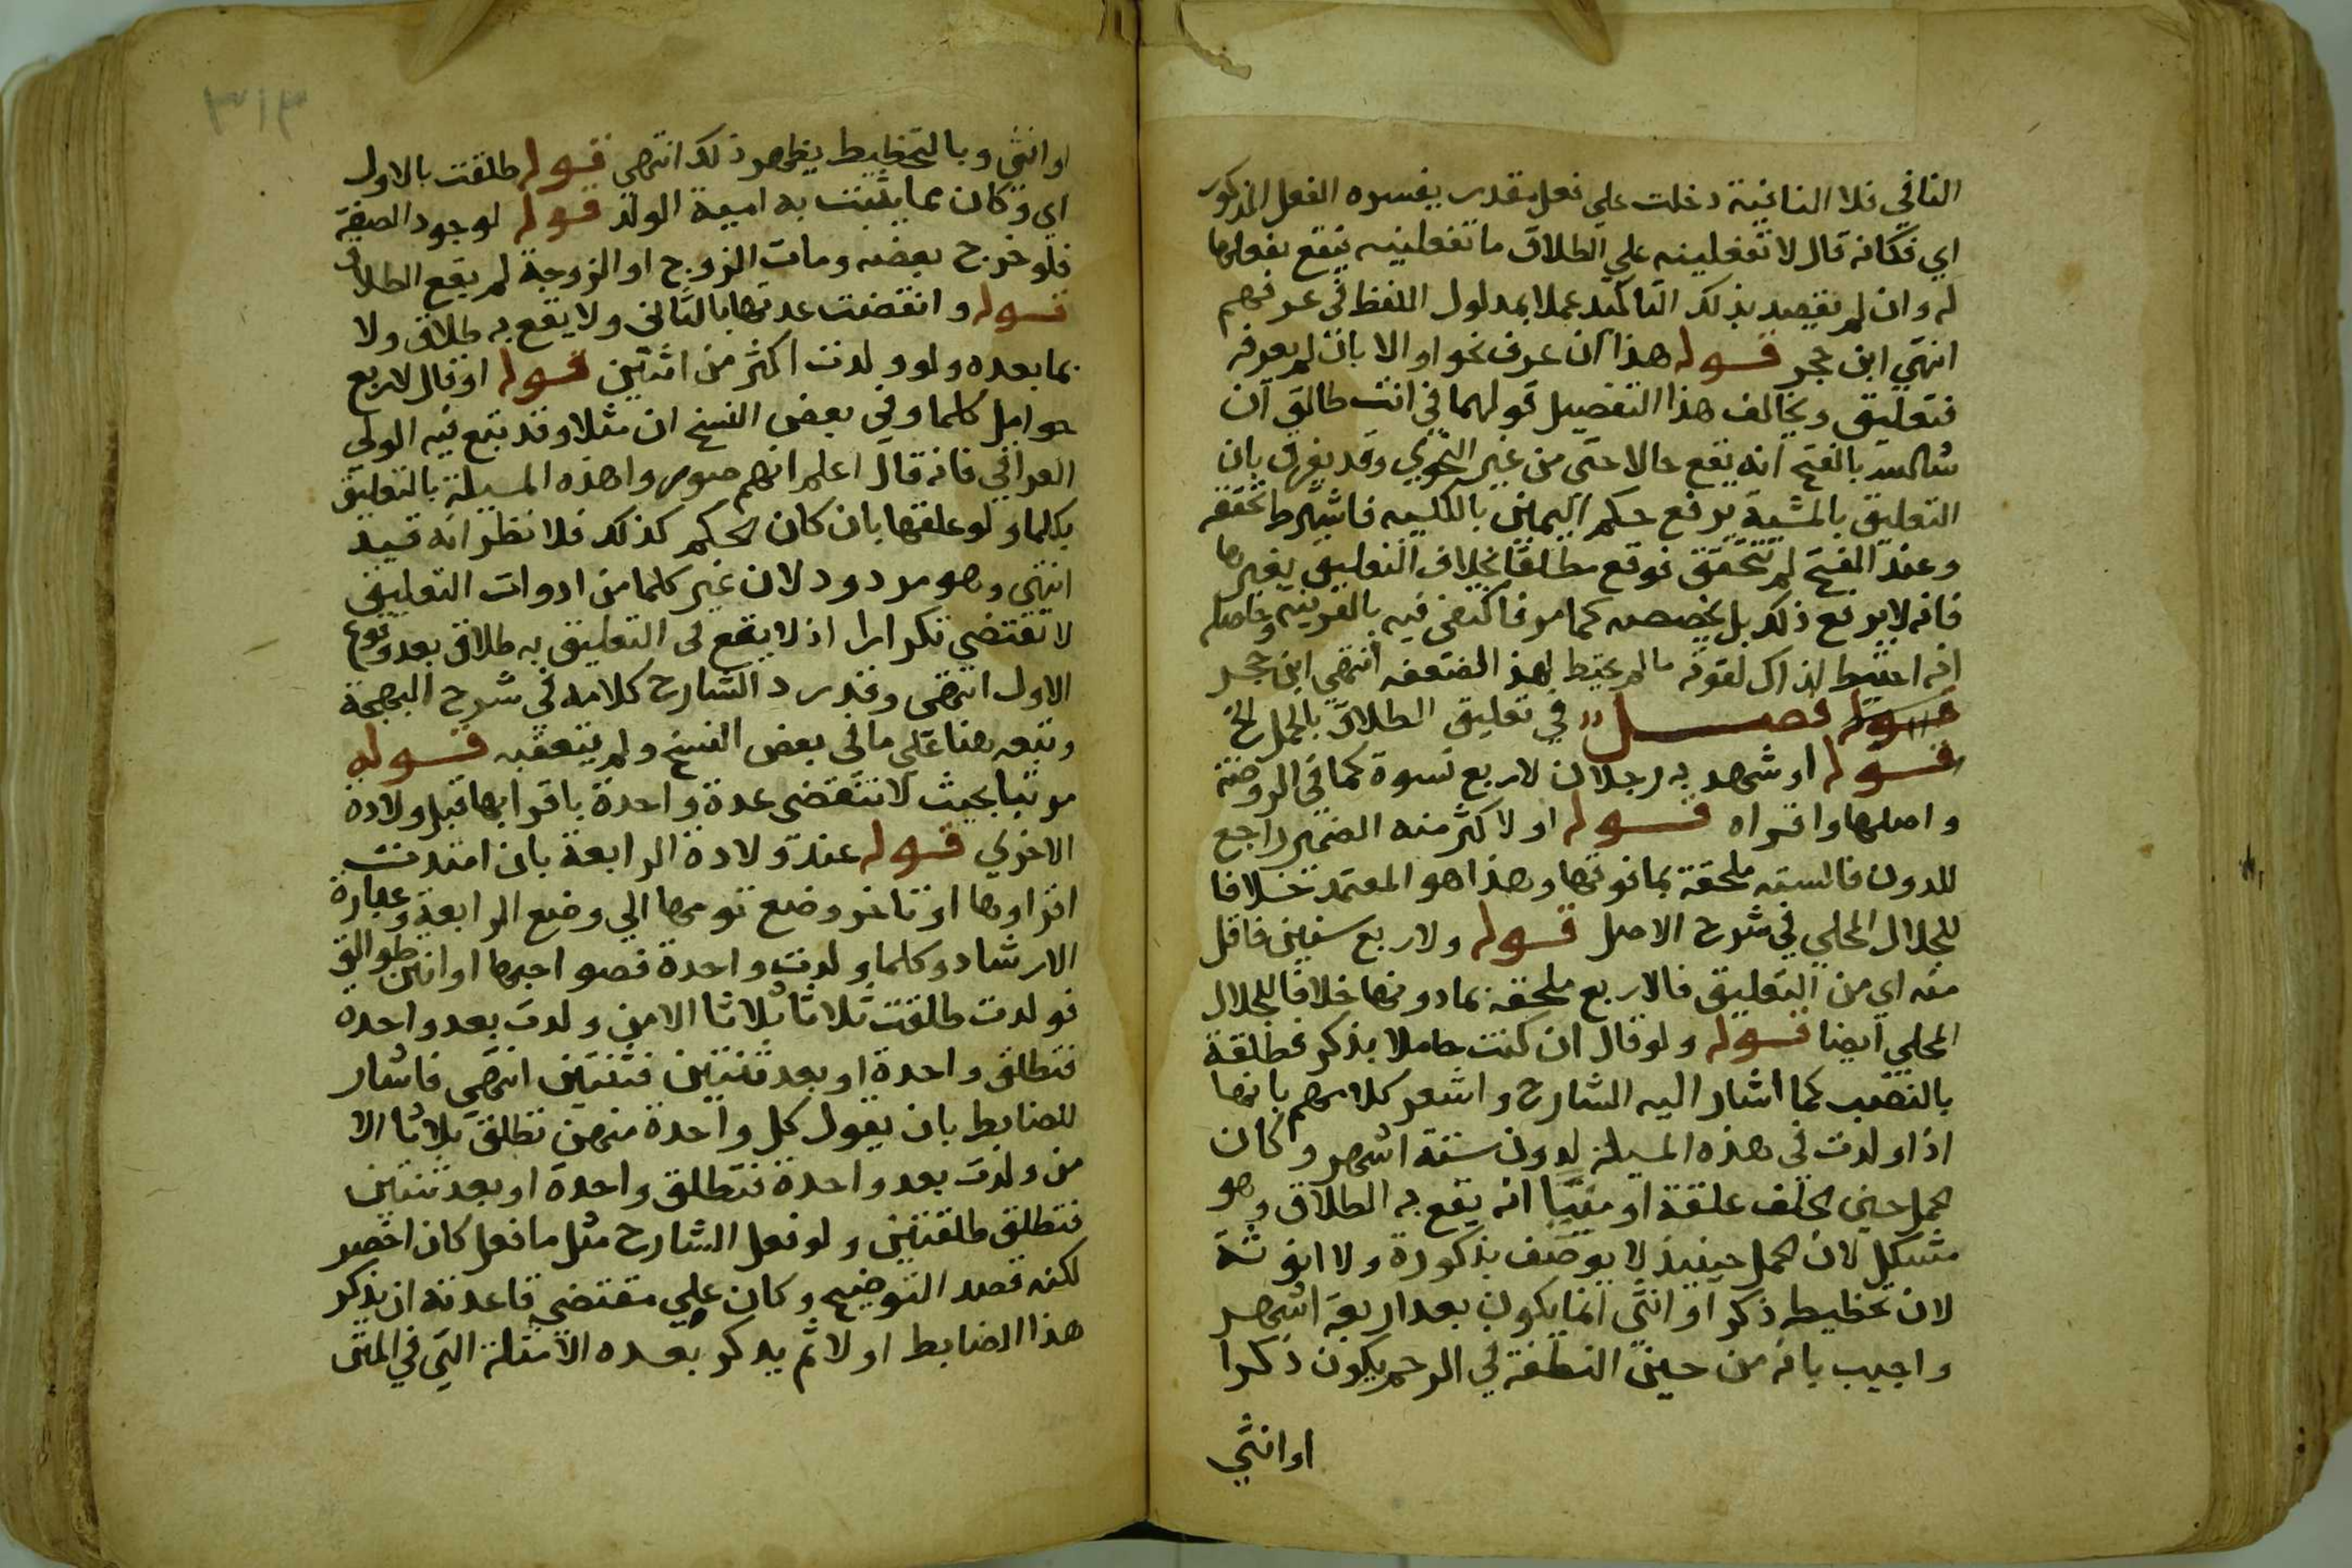 النافي فلا الناغية دخلت علي فعل مقدر يفسره الفعل المذكور
اي فكانه قال لا تفعلينه علي الطلاق ما تفعلينه فيقع بفعلها
له وان لم تقصد بذلك التاكيد عملا بمدلول اللفظ في عرفهم
انتهي ابن حجر قوله هذا ان عرف نحو او الا بان لم يعرفه
فتعليق ويخالف هذا التفصيل قولهما في انت طالق ان
شا الله بالفتح انه يقع حالا حتى من غير النحوي وقد يفرق بان
التعليق بالمشية يرفع حكم اليمين بالكليه فاشترط تحققه
وعند الفتح لم يتحقق فوقع مطلقا بخلاف التعليق بغيرها
فانه لا يرفع ذلك بل يخصصه كما مر فاكتفى فيه بالقرينه وحاصله
انه احتيط لذاك لقوته ما لم يحتط لهذ الضعفه انتهي ابن حجر
قوله فصل في تعليق الطلاق بالحمل الخ
قوله او شهد به رجلان لاربع نسوة كما في الروضة
واصلها واقراه قوله او لاكثر منه الضمير راجع
للدون فالسته ملحقة بما فوقها وهذا هو المعتمد خلافا
للجلال المحلي في شرح الاصل قوله ولاربع سنين فاقل
منه اي من التعليق فالاربع ملحقه بما دونها خلافا للجلال
المحلي ايضا قوله ولو قال ان كنت حاملا بذكر فطلقة
بالنصب كما اشار اليه الشارح واشعر كلامهم بانها
اذا ولدت في هذه المسيلة لدون ستة اشهر وكان
الحمل حين الحلف علقة او منيا انه يقع به الطلاق وهو
مشكل لان الحمل حينيذ لا يوصف بذكورة ولا انوثة
لان تخطيط ذكر او انثى انما يكون بعد اربعة اشهر
واجيب بانه من حين النطفة في الرحم يكون ذكرا
او انثي
٣١٣
او انثي وبالتخطيط يظهر ذلك انتهي قوله طلقت بالاول
اي وكان مما يثبت به امية الولد قوله لوجود الصفة
فلو خرج بعضه ومات الزوج او الزوجة لم يقع الطلاق
قوله وانقضت عدتها بالثاني ولا يقع به طلاق ولا
بما بعده ولو ولدت اكثر من اثنين قوله او قال لاربع
حوامل كلما وفي بعض النسخ ان مثلا وقد تبع فيه الولي
العراقي فانه قال اعلم انهم صوروا هذه المسيلة بالتعليق
بكلما ولو علقها بان كان الحكم كذلك فلا نظر انه قيد
انتهي وهو مردود لان غير كلما من ادوات التعليق
لا تقتضي تكرارا اذ لا يقع في التعليق به طلاق بعد وقوع
الاول انتهى وقد رد الشارح كلامه في شرح البهجة
وتبعه هنا على ما في بعض النسخ ولم يتعقبه قوله
مرتبا بحيث لا تنقضي عدة واحدة باقرايها قبل ولادة
الاخري قوله عند ولادة الرابعة بان امتدت
اقراوها او تاخر وضع تومها الي وضع الرابعة وعبارة
الارشاد وكلما ولدت واحدة فصواحبها او انتن طوالق
فولدت طلقت ثلاثا ثلاثا الا من ولدت بعد واحدة
فتطلق واحدة او بعد ثنتين فثنتين انتهى فاشار
للضابط بان يقول كل واحدة منهن تطلق ثلاثا الا
من ولدت بعد واحدة فتطلق واحدة او بعد ثنتين
فتطلق طلقتين ولو فعل الشارح مثل ما فعل كان اخصر
لكنه قصد التوضيح وكان علي مقتضي قاعدته ان يذكر
هذا الضابط اولا ثم يذكر بعده الامثلة التي في المتن